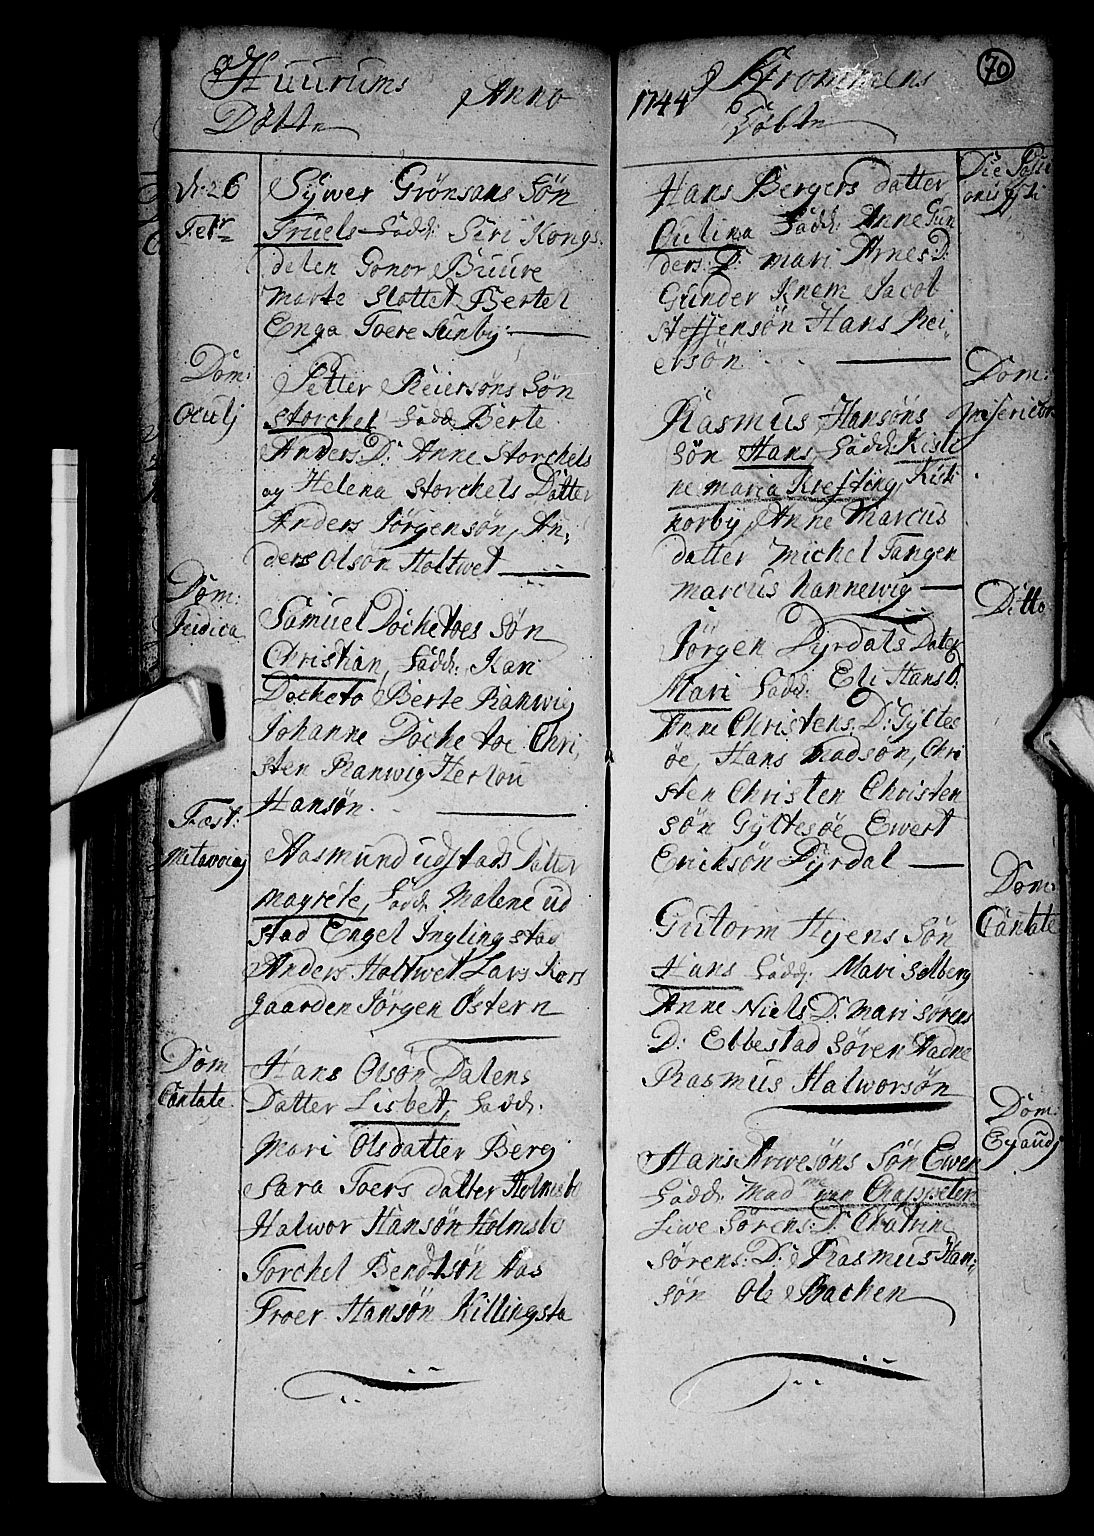 Huurums
Anno
Döbte
d. 26
Febr
Sÿwer Grönsans Sön
Truels Fadd: Siri Kongs
delen Gonor Buure
Marte Slottet Bertel
Enga Toere Sunby
Dom:
Oculj
Petter Reiersöns Sön
Storchel Fadd: Berte
Anders D: Anne Storchels
og Helena Storchels Datter
Anders Jörgensön, An,
ders Olson Holtwet
Dom:
Judica
Samuel Dochetoes Sön
Christian, Fadd: Kari
Docheto Berte Ranwig
Johanne Dochetoe Chri,
sten Ranwig Herlou
Hansön
Fæst:
Aasmund udstads Datter
Magrete, Fadd: Malene ud
stad Engel Inglingstad
Anders Holtwet Lars Kors
gaarden Jörgen Östern
Dom
Cantate
Hans Olsön Dalens
Datter Lisbet, Fadd:
Mari Olsdatter Berg
Sara Toers datter Holmsbo
Halwor Hansön Holmsbo
Torchel Bendtsön Aas
Troer Hansön Killingsta
70
1744
Strommens
Döbte
Hans Bergers datter
Oulina Fadd: Anne Gun
ders: D: Mari Arnes D:
Gunder Knem Jacob
Steffensön Hans Rei,
ersön
Dom:
Misericor
Rasmus Hansöns
Sön Hans Fadd: Kisti
ne Maria Krefting Kisti
Korby, Anne Marcus
datter Michel Tangen
Marcus Hannewig
Ditto
Jörgen Dyrdals Dater
Mari Fadd: Eli Hans D:
Anne Christens: D: Gyltes
öe, Hans Madsön, Chri
sten Christen Christen
sön Gyltesöe Ewert
Ericksön Dyrdal
Dom:
Cantate
Gutorm Hyens Sön
Hans Fadd: Mari Solberg
Anne Niels D: Mari Sörens
D: Ebbestad Sören Aadne
Rasmus Halworsön
Dom:
Exaudj
Hans Arwesöns Sön Ewen
Fadd: Mad me von Chappelen
Siwe Sörens: D: Chatrine
Sörens: D: Rasmus Han,
sön Ole Bachen